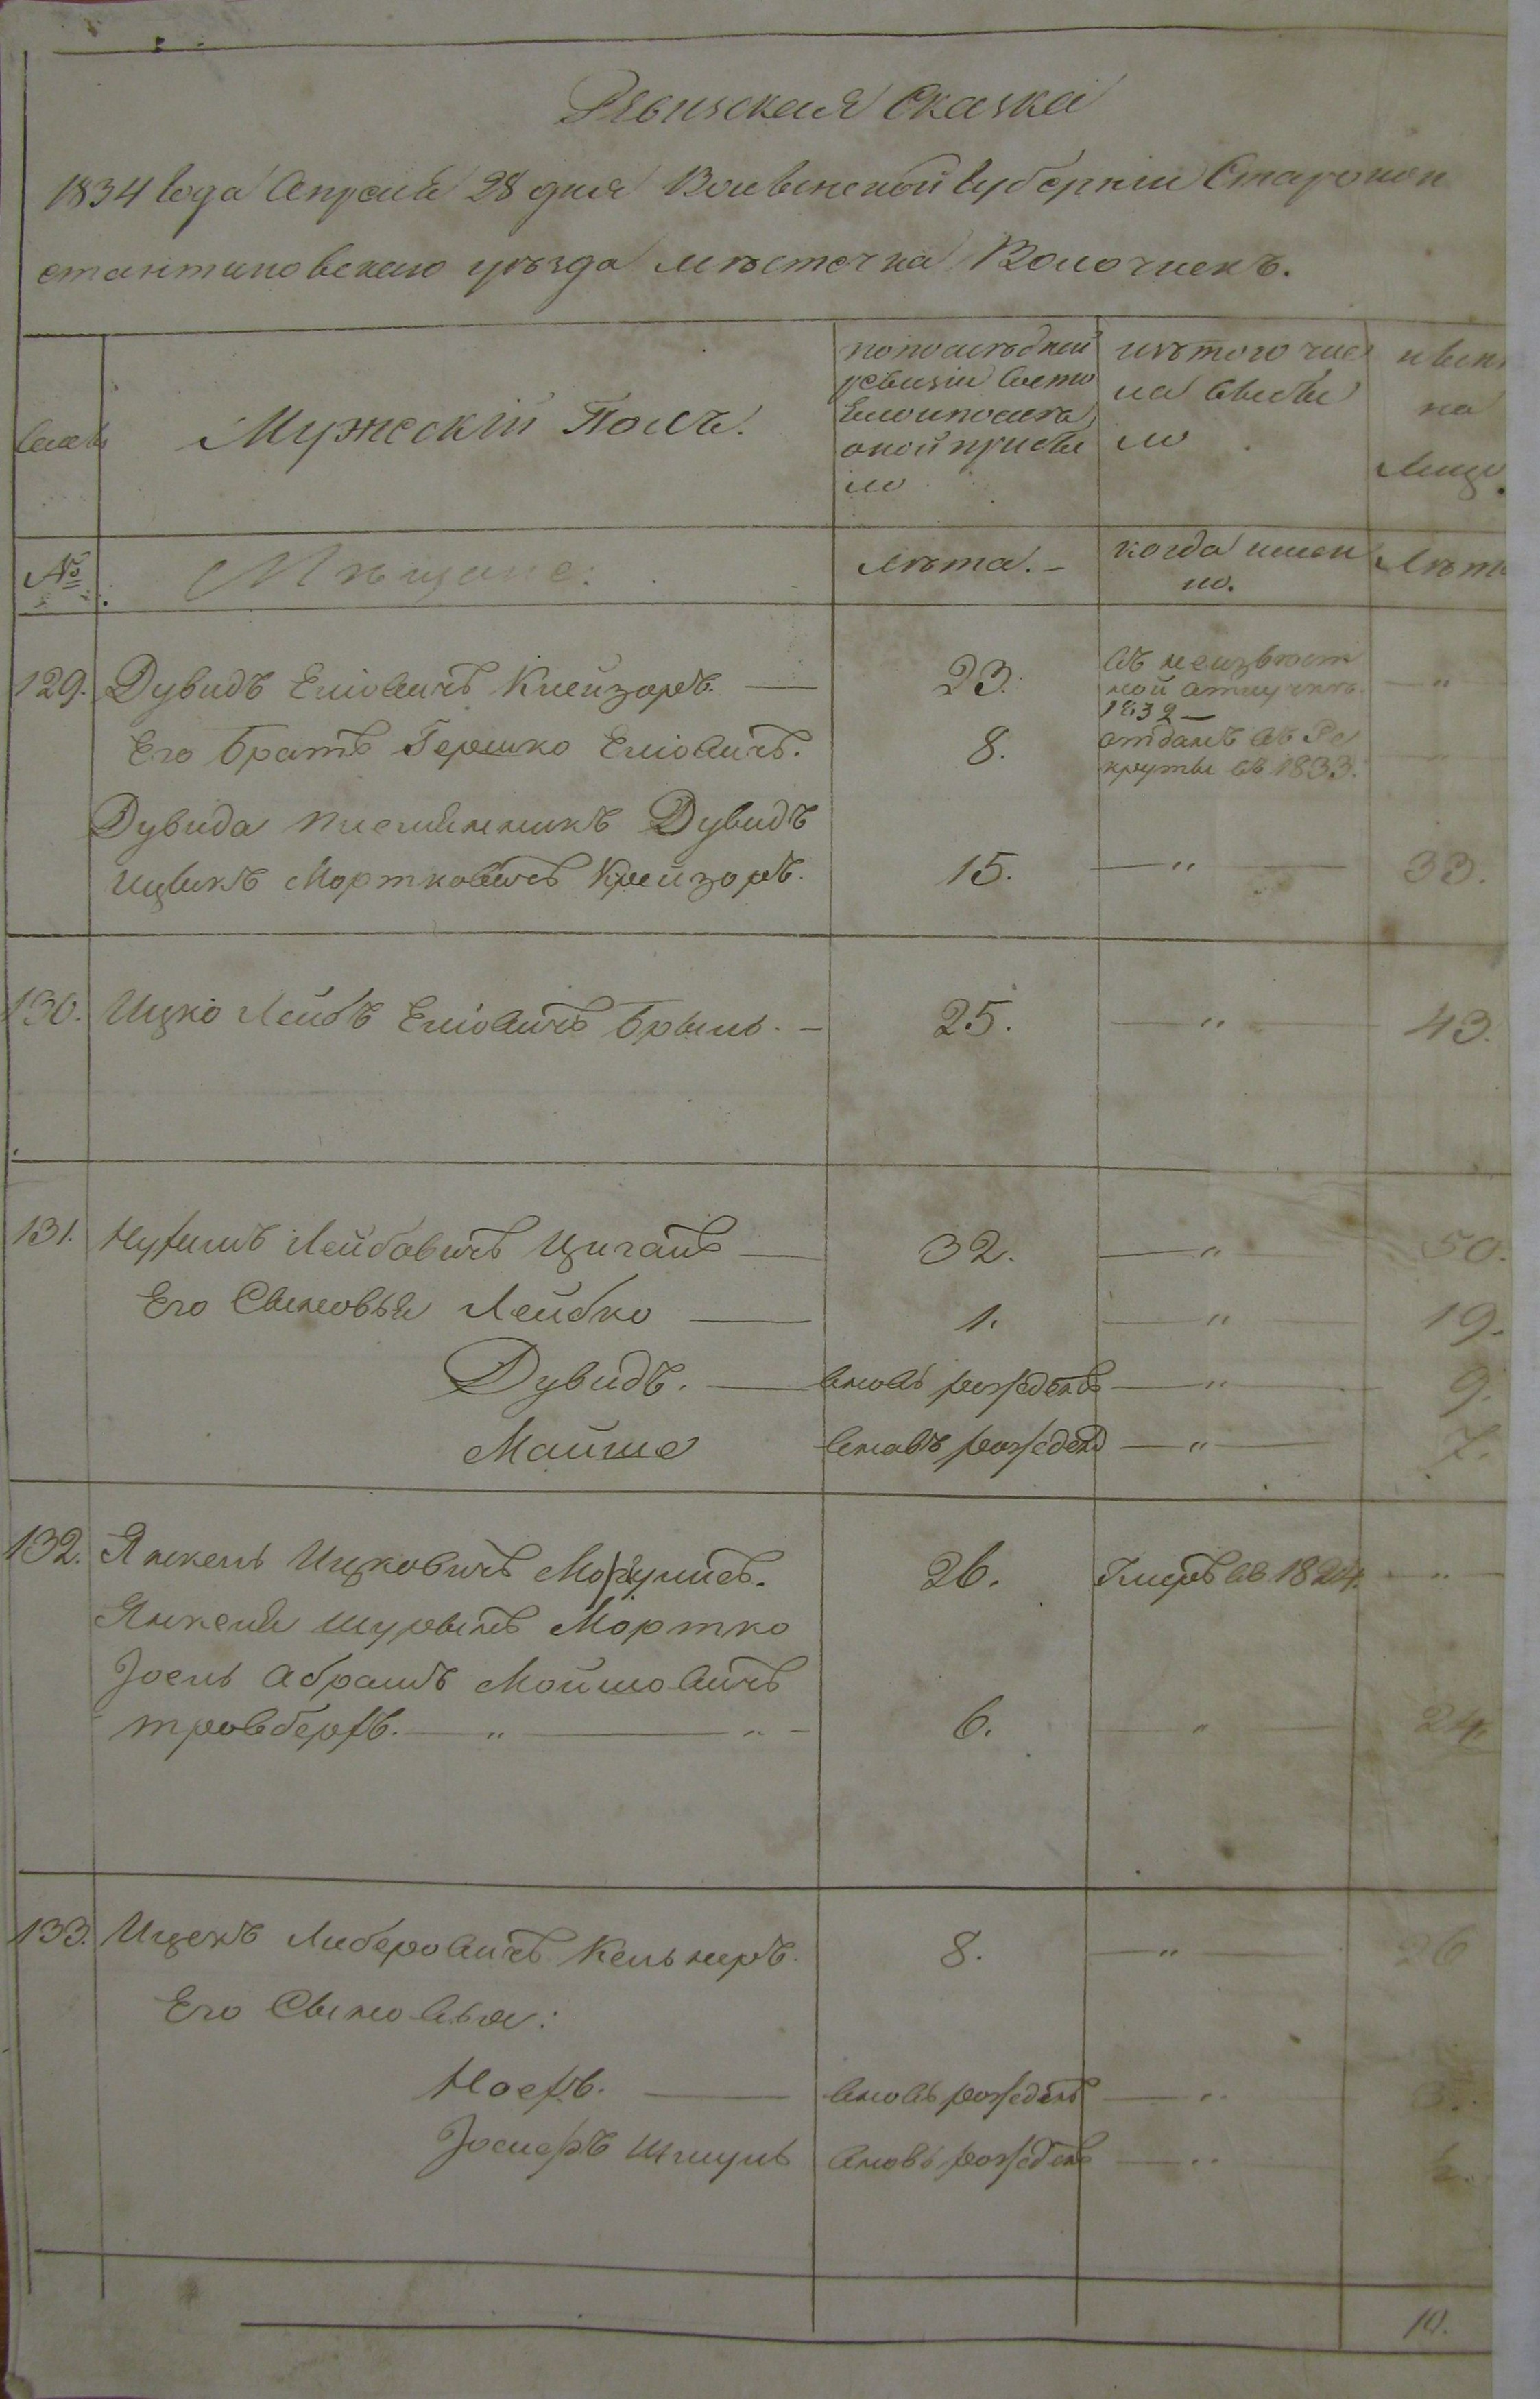 Ревизская Сказка
1834 года Апреля 28 дня Волынской губернии Старокон
стантиновского уѣзда мѣстечка Волочискъ.
Мужескій Полъ.
по послѣдней
ревизіи состо
яло и послѣ
оной прибы
ло
изъ того чис
ла выбы
ло
нынѣ
на
лицо.
№
Мѣщане:
Лѣта.
когда имен
но.
Лѣта
129. Дувидъ Еліовичъ Клейзоръ. — 23. въ неизвѣст
ной отлучкѣ — " —
1832 —
Его братъ Гершко Еліовичъ. 8. отданъ въ Ре
круты въ 1833.
Дувида племянникъ Дувидъ
Ицыкъ Мортковичъ Крейзоръ. 15. — " — 33.
130. Ицко Лейбъ Еліовичъ Брыль. — 25. — " — 43.
131. Нухимъ Лейбовичъ Циганъ — 32. — " — 50.
Его Сыновья Лейбко — 1. — " — 19.
Дувидъ. — вновь рожденъ — " — 9.
Мойше вновь рожденъ — " — 7.
132. Янкель Ицковичъ 26. Умеръ въ 1824. — " —
Янкеля шурынъ Мортко
Іоель Абрамъ Мойшовичъ
— " — " — 6. — " — 24.
133. Ицекъ Либеровичъ Кельнеръ. 8. — " — 26
Его Сыновья:
Носефъ. — вновь рожденъ — " — 3.
Шмуль вновь рожденъ — " —
10.